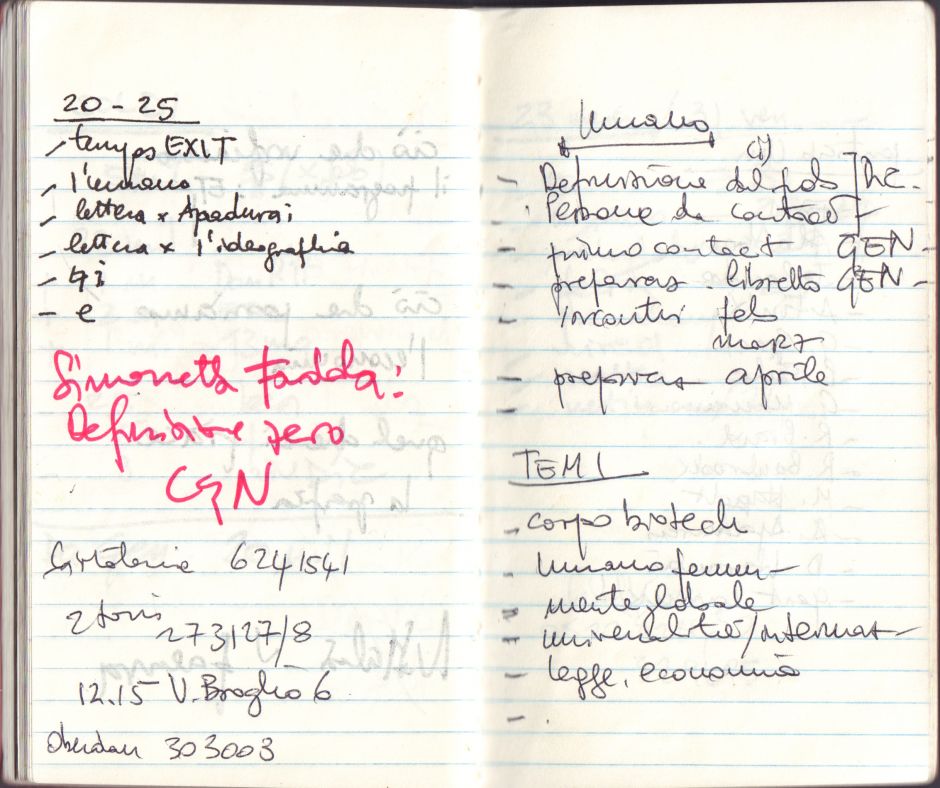 20 - 25
- tempo EXIT
- l'umano
- lettera x Apadurai
- lettera x l'ideografia
- 4i
- e
Simonetta Fadda:
Definizione zero
GEN
6241541
2
273127/8
12.15 V. Broglio 6
Oberdan 303003
Umano
(i)
- Definizione del
Persone da
primo contact GEN -
- preparaz. libretto GEN -
- incontri feb
marz
- preparaz aprile
TEMI
- corpo biotech
umano femm -
- mente globale
- universalità/internaz -
- legge, economia
- .